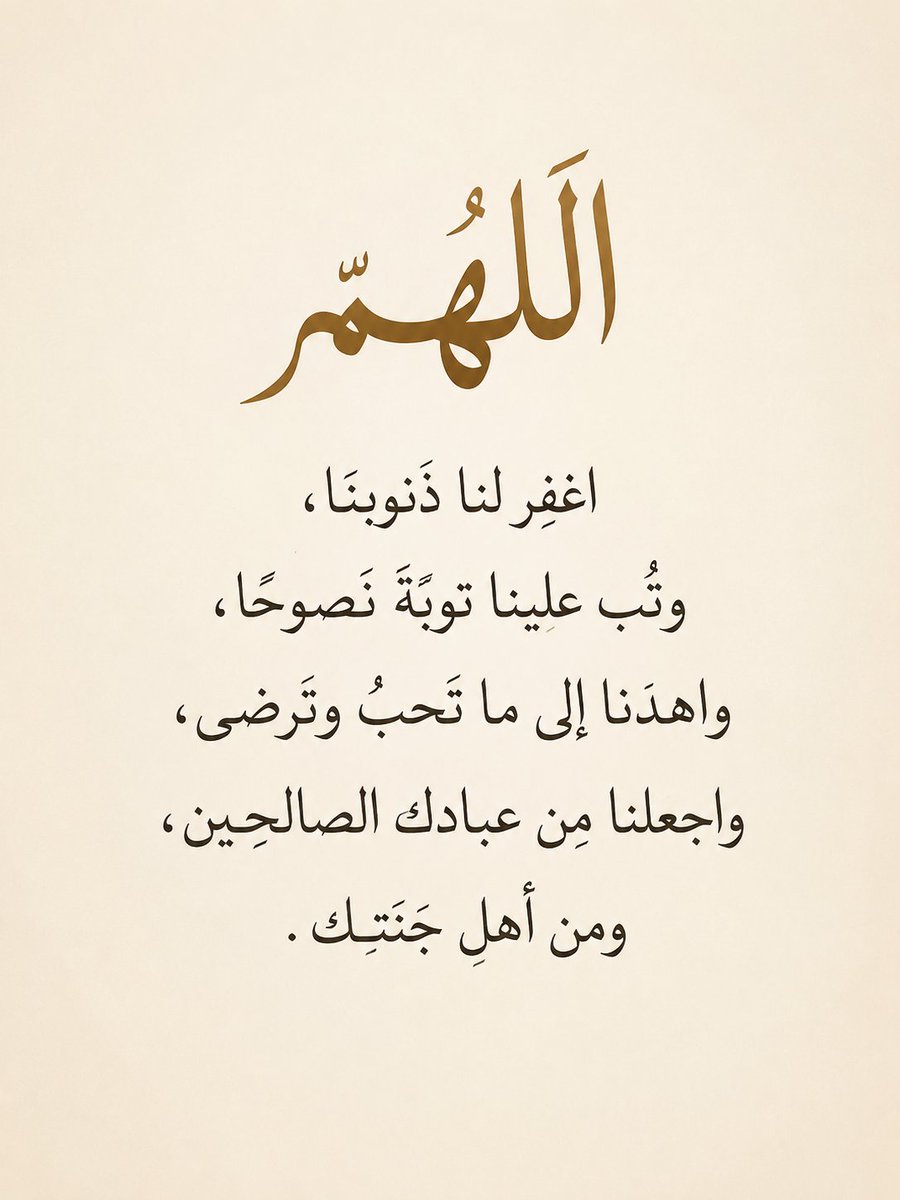 اَللهُمّ
اغفِر لنا ذَنوبنَا،
وتُب علِينا توبًَةَ نَصوحًا،
واهدَنا إلى ما تَحبُ وتَرضى،
واجعلنا مِن عبادك الصالحِين،
ومن أهلِ جَنَتِـك .